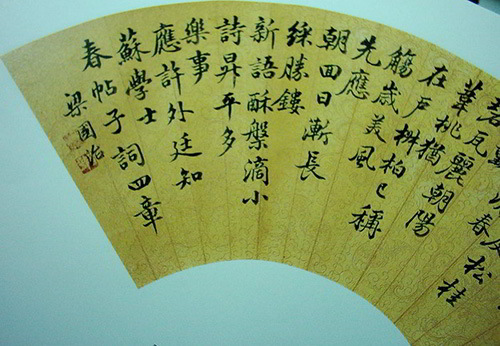 松桂
瓦麗朝陽
葦桃猶
在戶椒柏已稱
觴歲美風
先應
朝回日漸長
綵勝鏤
新語酥槃滴小
詩昇平多
樂事
應許外廷知
蘇學士
春帖子詞四章
梁國治